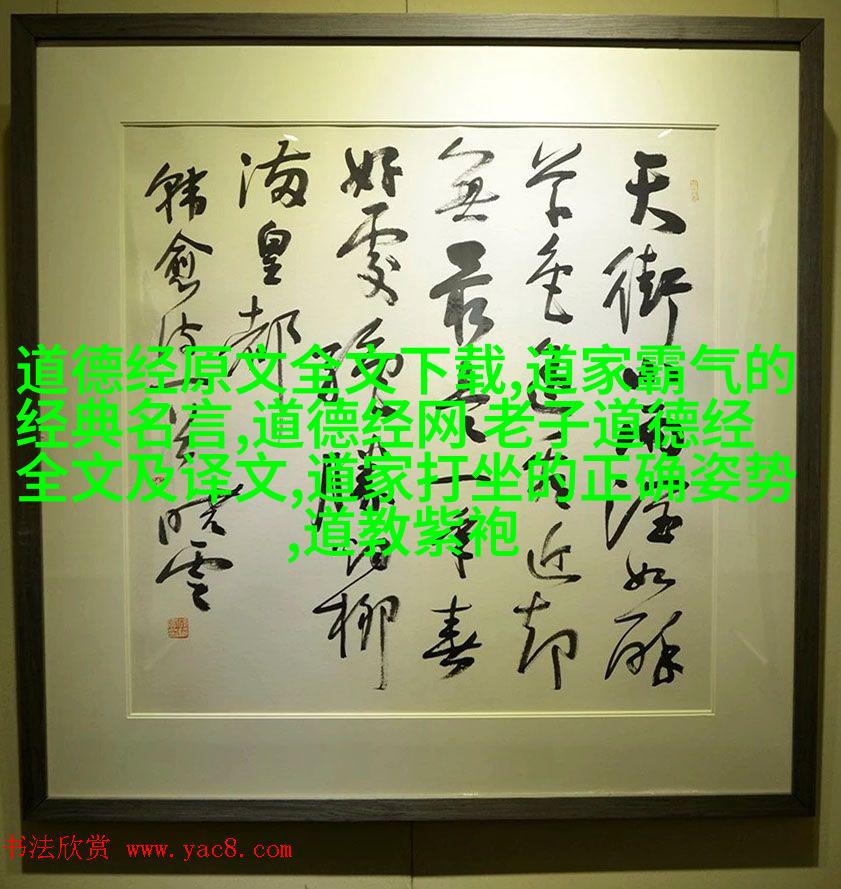 天街如酥
草色近却
無最是一年春
好處柳
满皇都
韩愈诗
晓雲
道德经原文全文下载,道家霸气的
经典名言,道德经网 老子道德经
全文及译文,道家打坐的正确姿势
,道教紫袍
书法欣赏 www.yac8.com